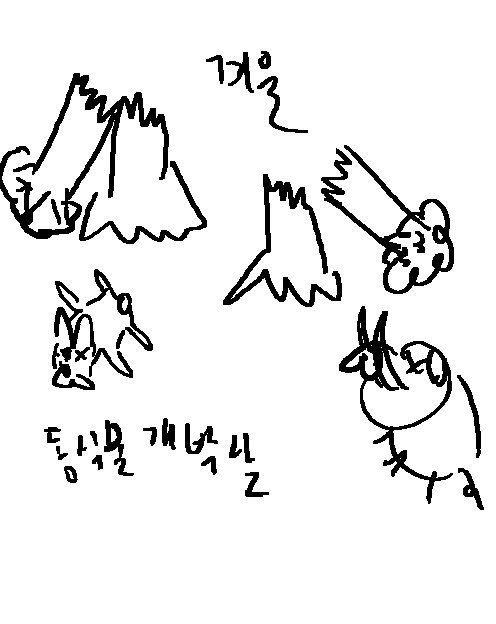 겨울
동식물 개박살